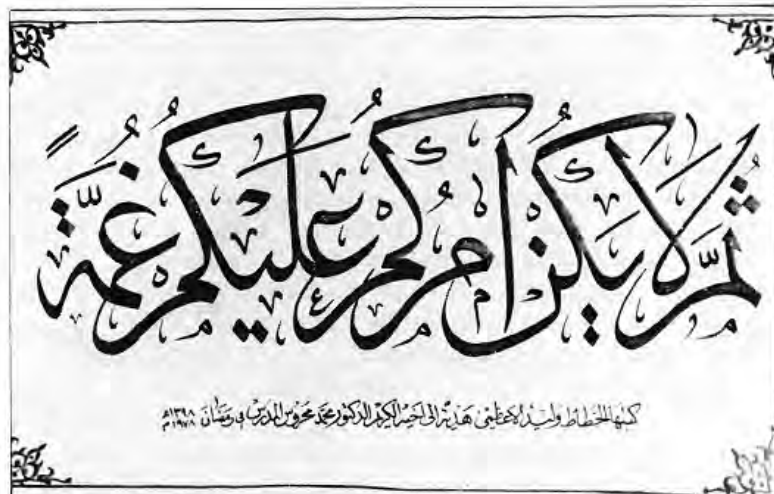 ثُمَّ لَا يَكُنْ أَمْرُكُمْ عَلَيْكُمْ غُمَّةً
كتبها الخطاط وليد الاعظمي هدية الى اخيه الكريم الدكتور محمد محروس المدرس في رمضان ١٣٩٨ه ١٩٧٨م